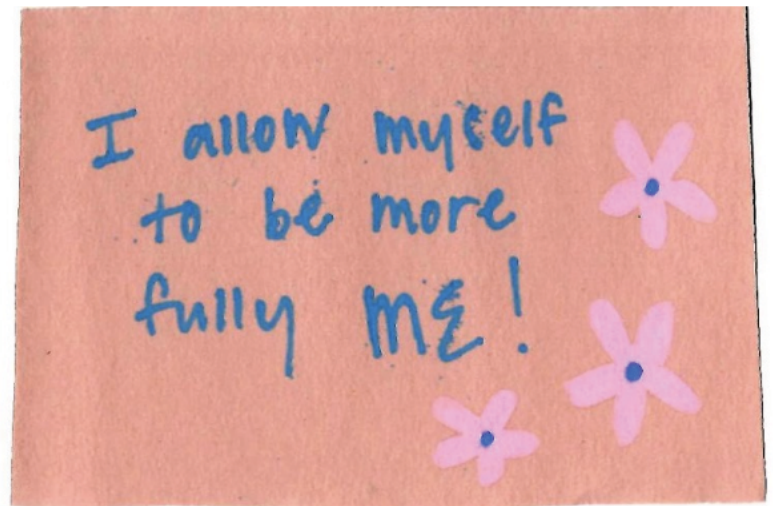 I allow myself
to be more
fully ME!